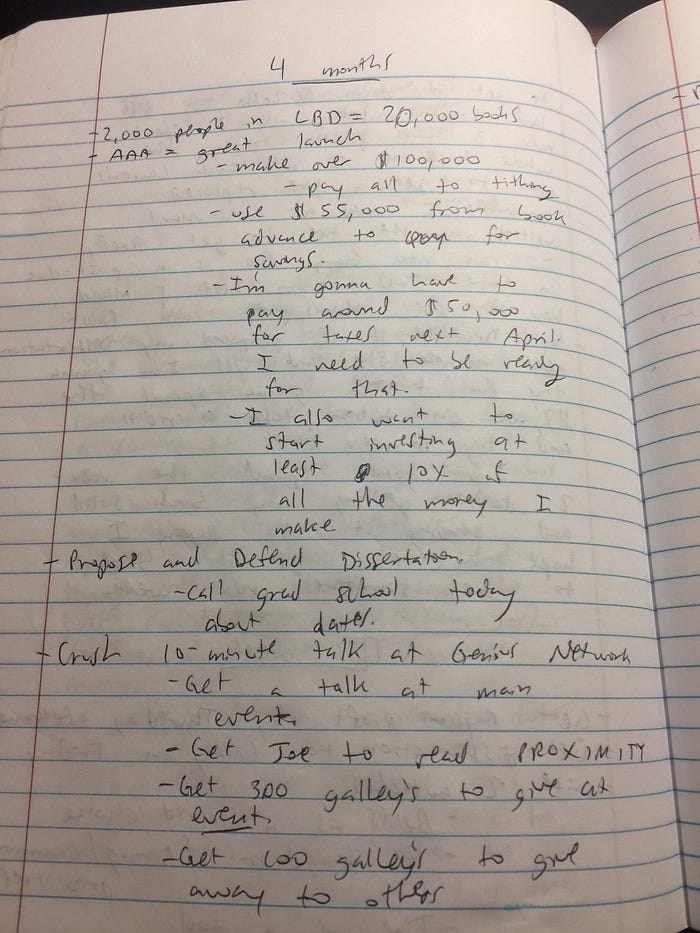 4 months
- 2,000 people in LBD = 20,000 books
- AAA = great launch
- make over $100,000
- pay all to tithing
- use $55,000 from book
advance to pay for
savings.
- I'm gonna have to
pay around $50,000
for taxes next April.
I need to be ready
for that.
- I also want to
start investing at
least 10% of
all the money I
make
- Propose and Defend Dissertation.
- call grad school today
about dates.
- Crush 10-minute talk at Genius Network
- Get a talk at main
event.
- Get Joe to read PROXIMITY
- Get 300 galley's to give at
event.
- Get 100 galley's to give
away to others